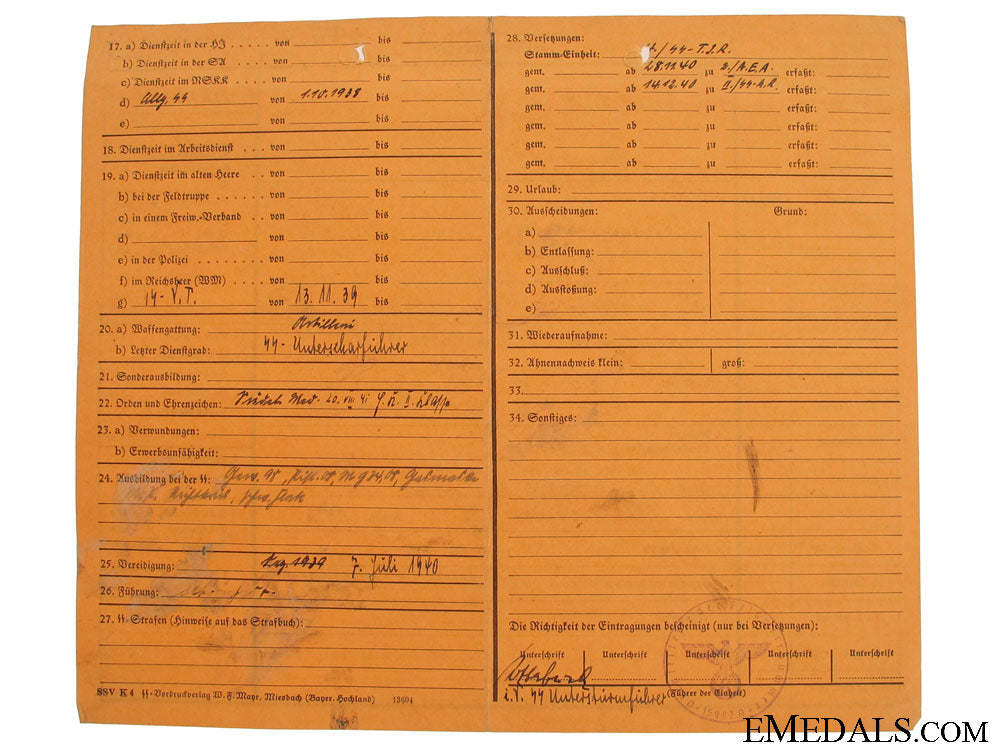 17. a) Dienstzeit in der HJ . . . . von bis
b) Dienstzeit in der SA . . . . von bis
c) Dienstzeit im NSKK . . . . von bis
d) Allg. SS von 1.10.1938 bis
e) von bis
18. Dienstzeit im Arbeitsdienst . . . von bis
19. a) Dienstzeit im alten Heere . . von bis
b) bei der Feldtruppe . . . . . von bis
c) in einem Freiw.-Verband . . von bis
d) von bis
e) in der Polizei . . . . . . . . von bis
f) im Reichsheer (WM) von bis
g) SS-V.T. von 13.11.39 bis
20. a) Waffengattung: Artillerie
b) Letzter Dienstgrad: SS-Unterscharführer
21. Sonderausbildung:
22. Orden und Ehrenzeichen: Sudet. Med. 20. VIII 41 II. Klasse
23. a) Verwundungen:
b) Erwerbsunfähigkeit:
24. Ausbildung bei der SS: Gew. 98, 08,
25. Vereidigung: 1939 7. Juli 1940
26. Führung:
27. SS-Strafen (Hinweise auf das Strafbuch):
SSV K 4 SS-Vordruckverlag W. F. Mayr, Miesbach (Bayer. Hochland) 13604
28. Versetzungen:
Stamm-Einheit: /SS-T.J.R.
gem. ab 28.11.40 zu 2./A.E.A. erfaßt:
gem. ab 14.12.40 zu II./SS-A.R. erfaßt:
gem. ab zu erfaßt:
gem. ab zu erfaßt:
gem. ab zu erfaßt:
gem. ab zu erfaßt:
29. Urlaub:
30. Ausscheidungen: Grund:
a)
b) Entlassung:
c) Ausschluß:
d) Ausstoßung:
e)
31. Wiederaufnahme:
32. Ahnennachweis klein: groß:
33.
34. Sonstiges:
Die Richtigkeit der Eintragungen bescheinigt (nur bei Versetzungen):
Unterschrift Unterschrift Unterschrift Unterschrift Unterschrift
i.V. SS Untersturmführer (Führer der Einheit)
EMEDALS.COM